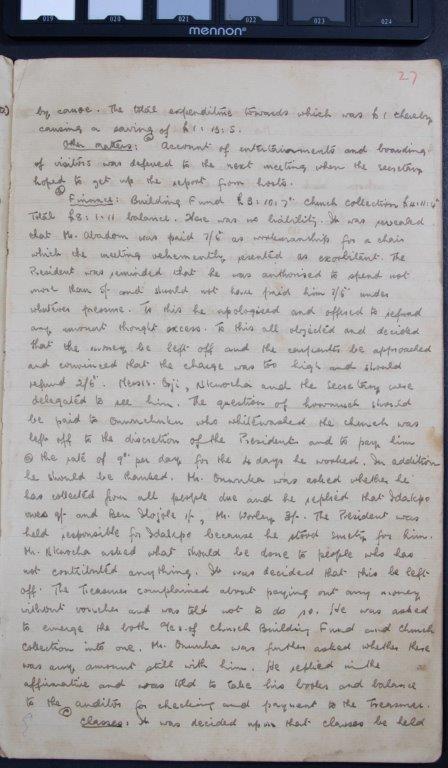 019 020 021 022 023 024
mennon
27
by canoe. The total expenditure towards which was £1 thereby
causing a saving of £1: 13: 5.
Other matters: Account of entertainments and boarding
of visitors was deferred to the next meeting when the secretary
hoped to get up the report from hosts.
Finance: Building Fund £3: 10: 7d Church collection
Total £8: 1: 11 balance. There was no liability. It was revealed
that Mr. Abadom was paid 7/6d as workmanship for a chair
which the meeting vehemently resented as exorbitant. The
President was reminded that he was authorised to spend not
more than 5/- and should not have paid him 7/6 under
whatever pressure. To this he apologised and offered to refund
any amount thought excess. To this all objected and decided
that the money be left off and the carpenter be approached
and convinced that the charge was too high and should
refund 2/6d. Messrs. Oji, Nkwocha and the Secretary were
delegated to see him. The question of how much should
be paid to who whitewashed the church was
left off to the discretion of the President and to pay him
@ the rate of 9d per day for the 4 days he worked. In addition
he should be thanked. Mr. Onwuka was asked whether he
has collected from all people due and he replied that Idakpo
owes and Ben 1/-, Mr. Worley 3/-. The President was
held responsible for Idakpo because he stood surety for him.
Mr. Nkwocha asked what should be done to people who has
not contributed anything. It was decided that this be left
off. The Treasurer complained about paying out any money
without voucher and was told not to do so. He was asked
to emerge the both a/cs. of Church Building Fund and Church
collection into one. Mr. Onwuka was further asked whether there
was any amount still with him. He replied in the
affirmative and was told to take his books and balance
to the auditor for checking and payment to the Treasurer.
Classes: It was decided upon that classes be held